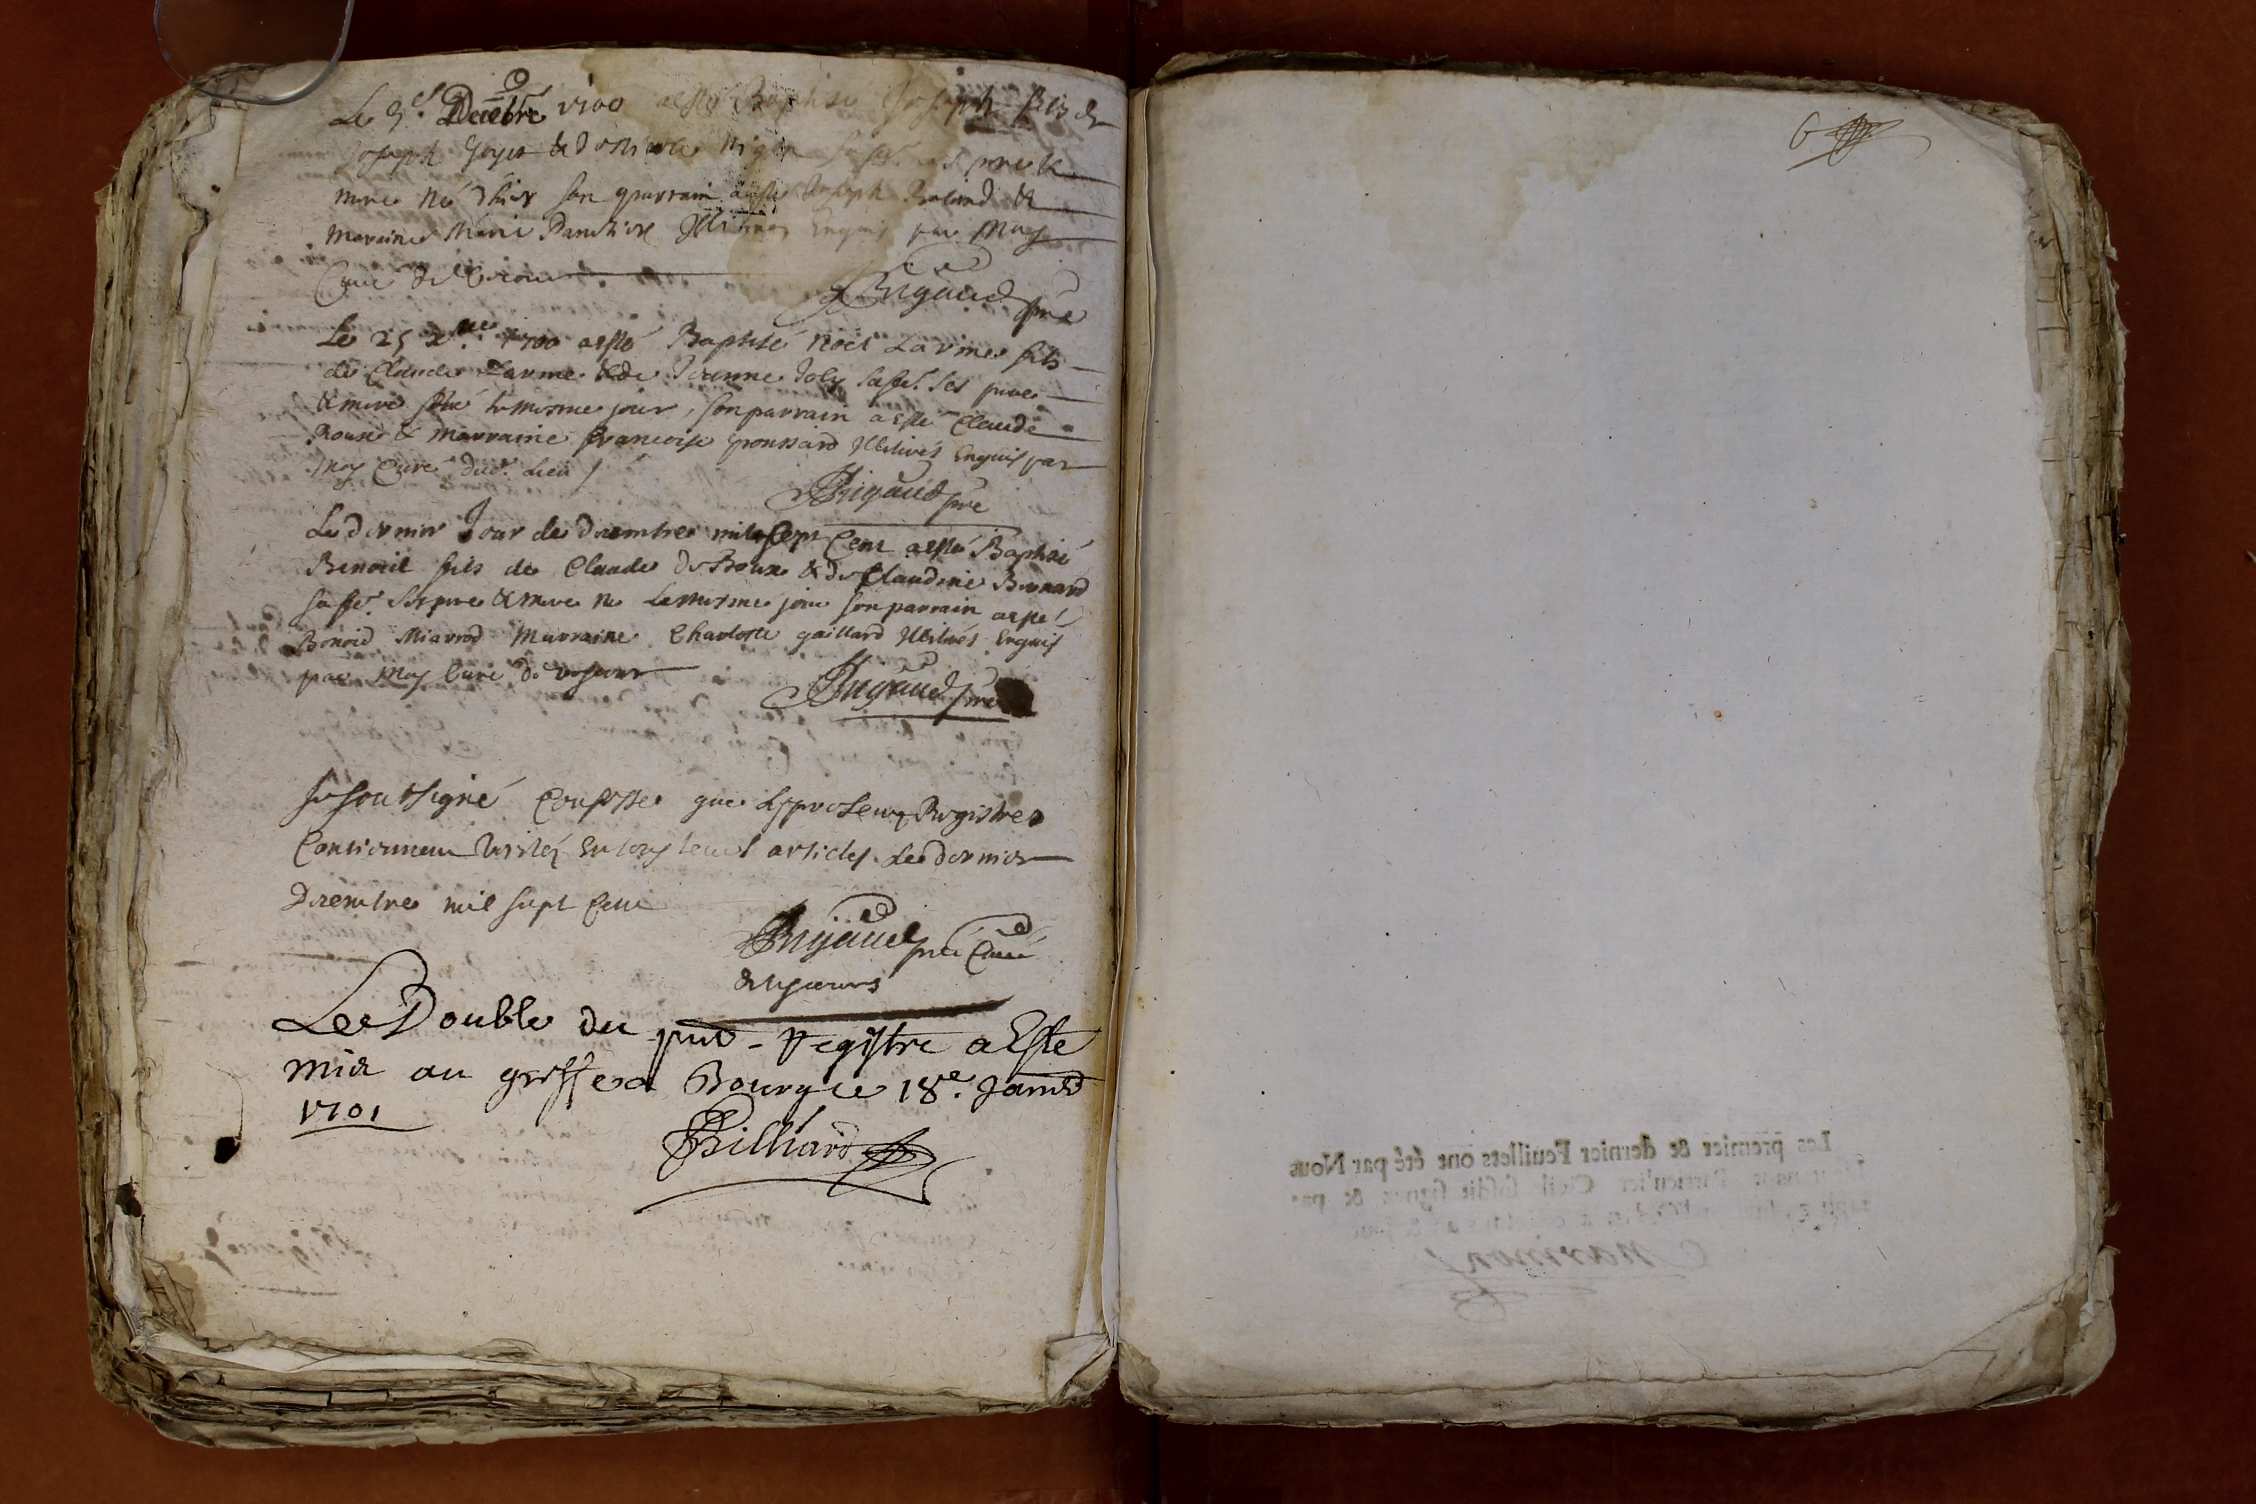 Le 9.e Decebre 1700 a esté Baptisé Joseph fils de
Joseph Goyet & d'Estiennete sa fe. pere &
mere né d'hier son parrain a esté Joseph Roland &
maraine Marie Illitirez Enquis par Moy
Curé de
JRigaud pre
Le 25 xbre 1700 a esté Baptisé Noël Larme fils
de Claude Larme & de Jeanne Joly sa fe. ses pere
& mere né le mesme jour, son parrain a esté Claude
Roux & marraine francoise ponssard Illitirés Enquis par
Moy Curé dud. Lieu
JRigaud pre
Le dernier Jour de decembre mil sept Cent a esté Baptisé
Benoit fils de Claude De Roux & de Claudine Bernard
sa fe. ses pere & mere né le mesme jour son parrain a esté
Benoid Miavrod Marraine Charlotte gaillard Illitirés Enquis
par Moy Curé de vescours
JRigaud pre
Je soubsigné Confesse que les presens Registres
Contiennent veritez En tous leurs articles Le dernier
Decembre mil sept Cent
JRigaud pre Curé
de vescours
Le Double du pnt Registre a Esté
mis au greffe a Bourg ce 18e. Janv
1701
JBilliard
6
Les premier & dernier Feuillets ont été par Nous
Lieutenant Particulier Civil susdit signez & pa-